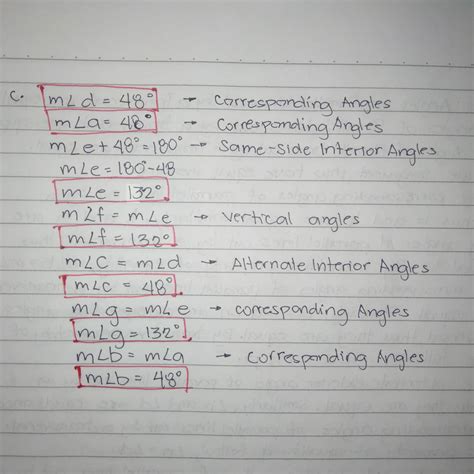 c. m∠d = 48° → Corresponding Angles
m∠a = 48° → Corresponding Angles
m∠e + 48° = 180° → Same-Side Interior Angles
m∠e = 180° - 48
m∠e = 132°
m∠f = m∠e → vertical angles
m∠f = 132°
m∠C = m∠d → Alternate Interior Angles
m∠c = 48°
m∠g = m∠e → corresponding Angles
m∠g = 132°
m∠b = m∠a → Corresponding Angles
m∠b = 48°